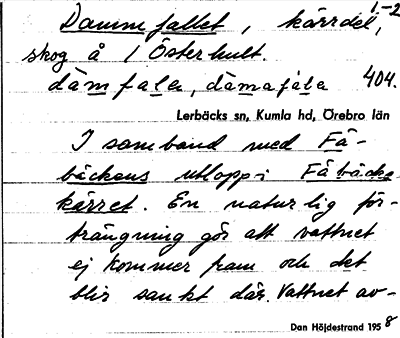 1-2
Dammfallet, kärrdel,
skog å 1 Österhult.
dàmfalar, dàmafala 404.
Lerbäcks sn, Kumla hd, Örebro län
I samband med Få-
bäckens utlopp i Fåbäcks
kärret. En naturlig för-
trängning gör att vattnet
ej kommer fram och det
blir sankt där. Vattnet av-
Dan Höjdestrand 1958